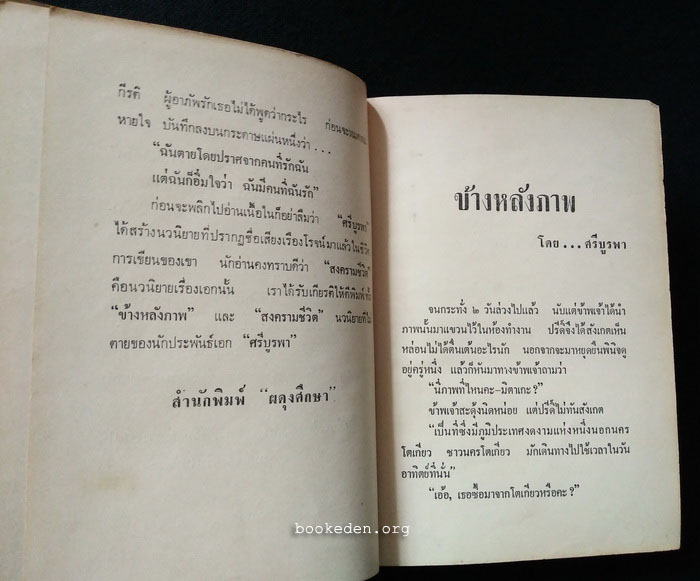 กีรติ ผู้อาภัพรักเธอไม่ได้พูดว่ากระไร ก่อนจะหมดลม
หายใจ บันทึกลงบนกระดาษแผ่นหนึ่งว่า...
“ฉันตายโดยปราศจากคนที่รักฉัน
แต่ฉันก็อิ่มใจว่า ฉันมีคนที่ฉันรัก”
ก่อนจะพลิกไปอ่านเนื้อในก็อย่าลืมว่า “ศรีบูรพา”
ได้สร้างนวนิยายที่ปรากฏชื่อเสียงเรื่องโรจน์มาแล้วในชีวิต
การเขียนของเขา นักอ่านคงทราบดีว่า “สงครามชีวิต”
คือนวนิยายเรื่องเอกนั้น เราได้รับเกียรติให้ตีพิมพ์ทั้ง
“ข้างหลังภาพ” และ “สงครามชีวิต” นวนิยายที่ไม่
ตายของนักประพันธ์เอก “ศรีบูรพา”
สำนักพิมพ์ “ผดุงศึกษา”
ข้างหลังภาพ
โดย...ศรีบูรพา
จนกระทั่ง ๒ วันล่วงไปแล้ว นับแต่ข้าพเจ้าได้นำ
ภาพนั้นมาแขวนไว้ในห้องทำงาน ปรีดิ์จึงได้สังเกตเห็น
หล่อนไม่ได้ตื่นเต้นอะไรนัก นอกจากจะมาหยุดยืนพินิจดู
อยู่ครู่หนึ่ง แล้วก็หันมาทางข้าพเจ้าถามว่า
“นี่ภาพที่ไหนคะ-มิตาเกะ?”
ข้าพเจ้าสะดุ้งนิดหน่อย แต่ปรีดิ์ไม่ทันสังเกต
“เป็นที่ซึ่งมีภูมิประเทศงดงามแห่งหนึ่งนอกนคร
โตเกียว ชาวนครโตเกียว มักเดินทางไปใช้เวลาในวัน
อาทิตย์ที่นั่น”
“เอ้อ, เธอซื้อมาจากโตเกียวหรือคะ?”
bookeden.org